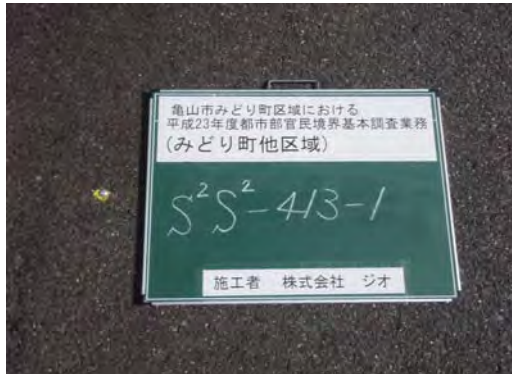 亀山市みどり町区域における
平成23年度都市部官民境界基本調査業務
(みどり町他区域)
S²S²-413-1
施工者 株式会社 ジオ